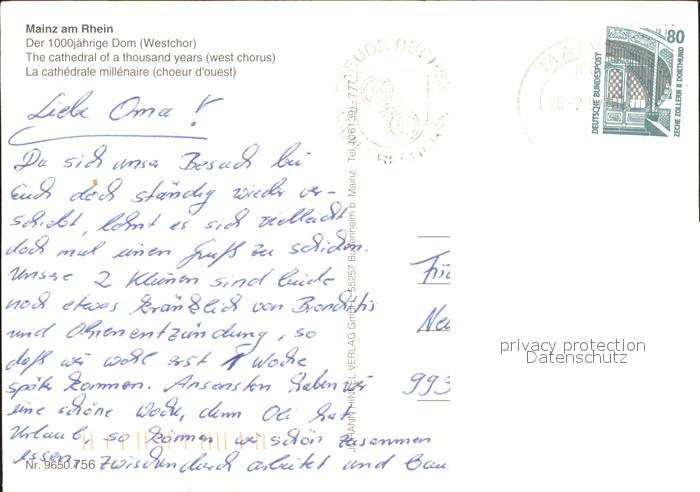 Mainz am Rhein
Der 1000jährige Dom (Westchor)
The cathedral of a thousand years (west chorus)
La cathédrale millénaire (choeur d'ouest)
Liebe Oma!
Da sich unser Besuch bei
Euch doch ständig wieder ver-
schiebt, lohnt es sich vielleicht
doch mal einen Gruß zu schicken.
Unsere 2 Kleinen sind beide
noch etwas kränklich von Bronchitis
und Ohrenentzündung, so
daß wir wohl erst 1 Woche
später kommen. Ansonsten haben wir
eine schöne Woche, denn Oli hat
Urlaub, so können wir schön zusammen
essen, zwischendurch arbeitet und bau
Nr. 9650.756
JOHANN HINKEL VERLAG GmbH, 55257 Budenheim b. Mainz - Tel. (06139)
FREUDE BUCHEN
MAINZ
26-2
80
DEUTSCHE BUNDESPOST
ZECHE ZOLLERN II DORTMUND
993
privacy protection
Datenschutz